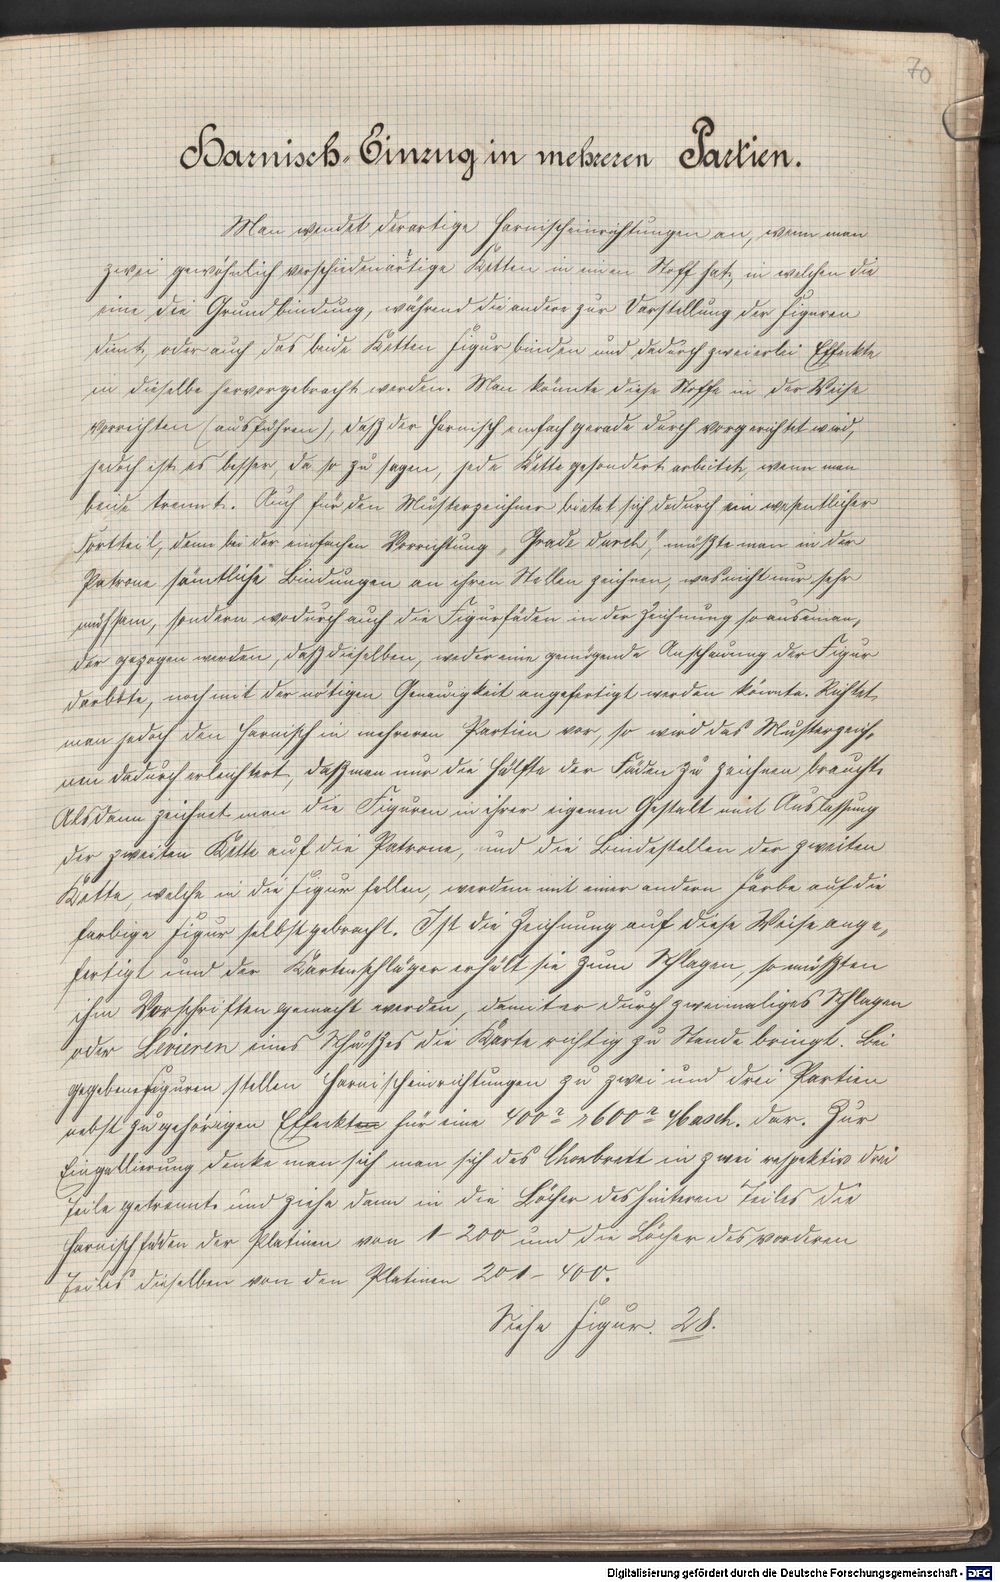 70
Harnisch-Einzug in mehreren Partien.
Man wendet derartige Harnischeinrichtungen an, wenn man
zwei gewöhnlich verschiedenartige Ketten in einen Stoff hat, in welchen die
eine die Grundbindung, während die andere zur Darstellung der Figuren
dient, oder auch das beide Ketten Figur binden und dadurch zweierlei Effeckte
in dieselbe hervorgebracht werden. Man könnte diese Stoffe in der Weise
vorrichten (ausführen), daß der Harnisch einfach gerade durch vorgerichtet wird,
jedoch ist es besser, da so zu sagen, jede Kette gesondert arbeitet, wenn man
beide trennt. Auch für den Musterzeichner bietet sich dadurch ein wesentlicher
Vortteil, denn bei der einfachen Vorrichtung „Grade durch", müßte man in der
Patrone sämtliche Bindungen an ihren Stellen zeichnen, was nicht nur sehr
mühsam, sondern wodurch auch die Figurfäden in der Zeichnung so auseinan,
der gezogen werden, daß dieselben, weder eine genügende Anschauung der Figur
darböte, noch mit der nötigen Genauigkeit angefertigt werden könnte. Richtet
man jedoch den Harnisch in mehreren Partien vor, so wird das Musterzeich,
nen dadurch erleichtert, daß man nur die Hälfte der Fäden zu zeichnen braucht.
Alsdann zeichnet man die Figuren in ihrer eigenen Gestalt mit Auslassung
der zweiten Kette auf die Patrone, und die Bindestellen der zweiten
Kette, welche in die Figur fallen, werden mit einer andern Farbe auf die
farbige Figur selbst gebracht. Ist die Zeichnung auf diese Weise ange-
fertigt und der Kartenschläger erhält sie zum Schlagen, so müßten
ihm Vorschriften gemacht werden, damit er durch zweimaliges Schlagen
oder Levieren eines Schußes die Karte richtig zu Stande bringt. Bei
gegebene Figuren stellen Harnischeinrichtungen zu zwei und drei Partien
nebst zugehörigen Effeckten für eine 400r 600r Masch. dar. Zur
Eingallierung denke man sich man sich das Chorbrett in zwei respektiv drei
Teile getrennt und ziehe dann in die Löcher des hinteren Teiles die
Harnischfäden der Platinen von 1-200 und die Löcher des vorderen
Teiles dieselben von den Platinen 201-400.
Siehe Figur. 28.
Digitalisierung gefördert durch die Deutsche Forschungsgemeinschaft - DFG